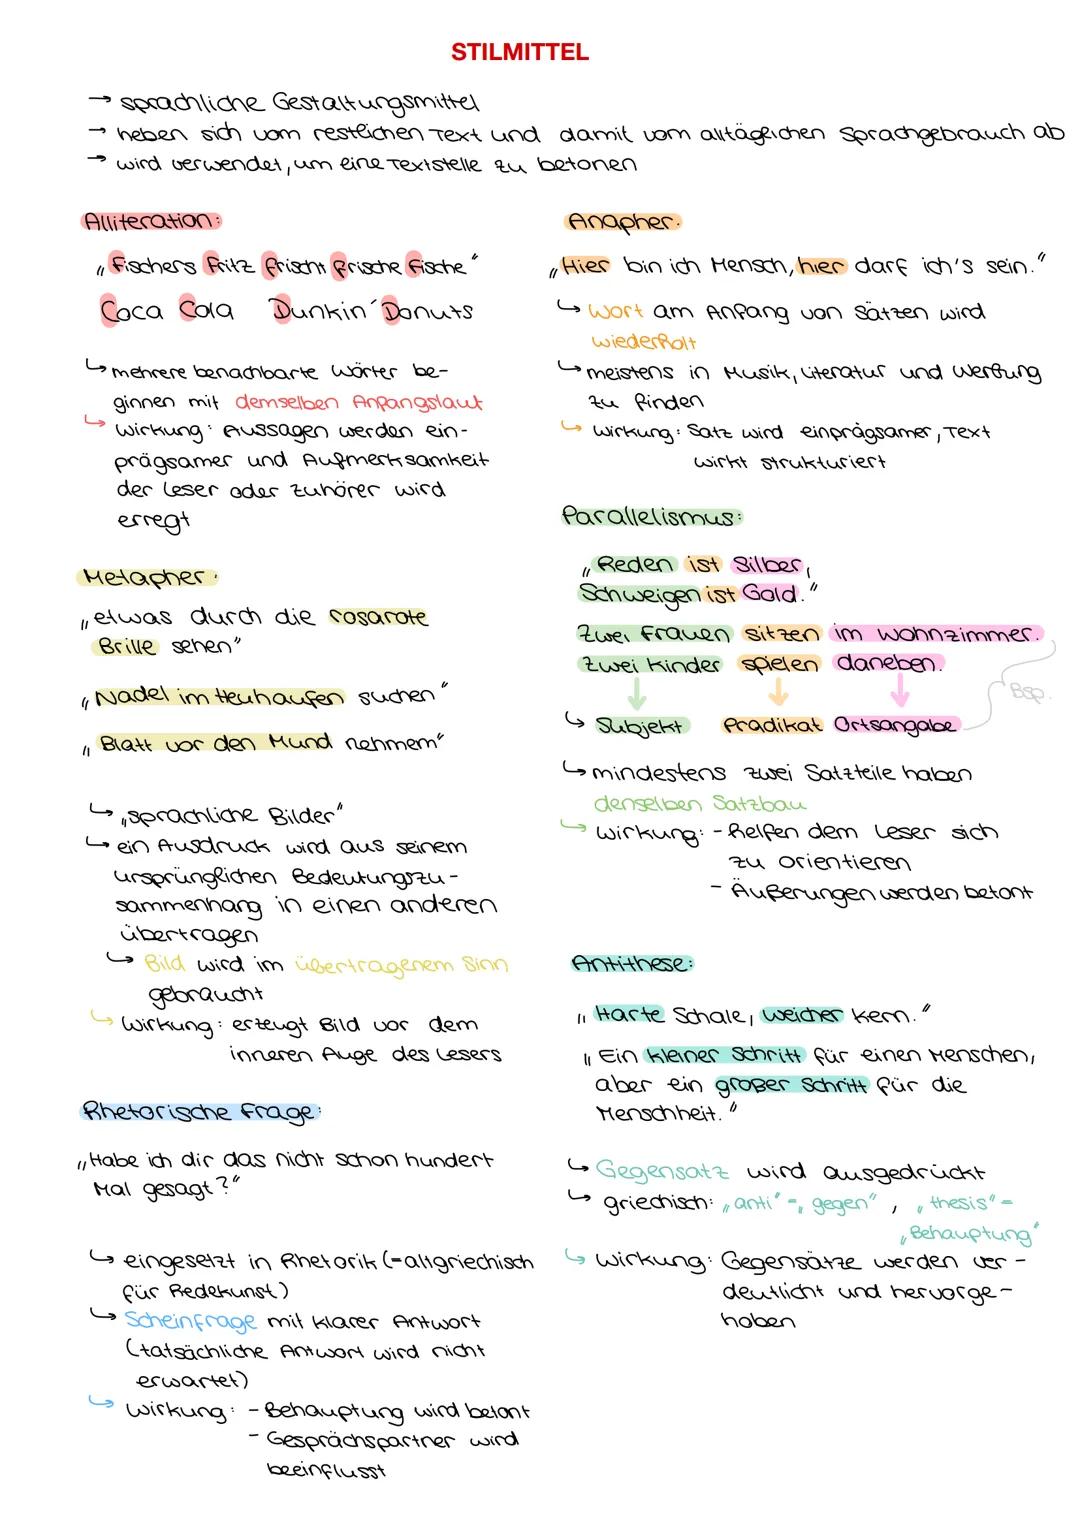 STILMITTEL
→ sprachliche Gestaltungsmittel
→ heben sich vom restlichen Text und damit vom alltäglichen Sprachgebrauch ab
→ wird verwendet, um eine Textstelle zu betonen
Alliteration:
„Fischers Fritz frischt frische Fische“
Coca Cola Dunkin´ Donuts
↳ mehrere benachbarte Wörter be-
ginnen mit demselben Anfangslaut
↳ Wirkung: Aussagen werden ein-
prägsamer und Aufmerksamkeit
der Leser oder Zuhörer wird
erregt
Metapher:
„etwas durch die rosarote
Brille sehen“
„Nadel im Heuhaufen suchen“
„Blatt vor den Mund nehmem“
↳ „sprachliche Bilder“
↳ ein Ausdruck wird aus seinem
ursprünglichen Bedeutungszu-
sammenhang in einen anderen
übertragen
↳ Bild wird im übertragenem Sinn
gebraucht
↳ Wirkung: erzeugt Bild vor dem
inneren Auge des Lesers
Rhetorische Frage:
„Habe ich dir das nicht schon hundert
Mal gesagt?“
↳ eingesetzt in Rhetorik (=altgriechisch
für Redekunst)
↳ Scheinfrage mit klarer Antwort
(tatsächliche Antwort wird nicht
erwartet)
↳ Wirkung: - Behauptung wird betont
- Gesprächspartner wird
beeinflusst
Anapher:
„Hier bin ich Mensch, hier darf ich's sein.“
↳ Wort am Anfang von Sätzen wird
wiederholt
↳ meistens in Musik, Literatur und Werbung
zu finden
↳ Wirkung: Satz wird einprägsamer, Text
wirkt strukturiert
Parallelismus:
„Reden ist Silber,
Schweigen ist Gold.“
Zwei Frauen sitzen im Wohnzimmer.
Zwei Kinder spielen daneben.
Bsp.
↳ Subjekt Prädikat Ortsangabe
↳ mindestens zwei Satzteile haben
denselben Satzbau
↳ Wirkung: - helfen dem Leser sich
zu orientieren
- Äußerungen werden betont
Antithese:
„Harte Schale, weicher Kern.“
„Ein kleiner Schritt für einen Menschen,
aber ein großer Schritt für die
Menschheit.“
↳ Gegensatz wird ausgedrückt
↳ griechisch: „anti“ = „gegen“, „thesis“ =
„Behauptung“
↳ Wirkung: Gegensätze werden ver-
deutlicht und hervorge-
hoben